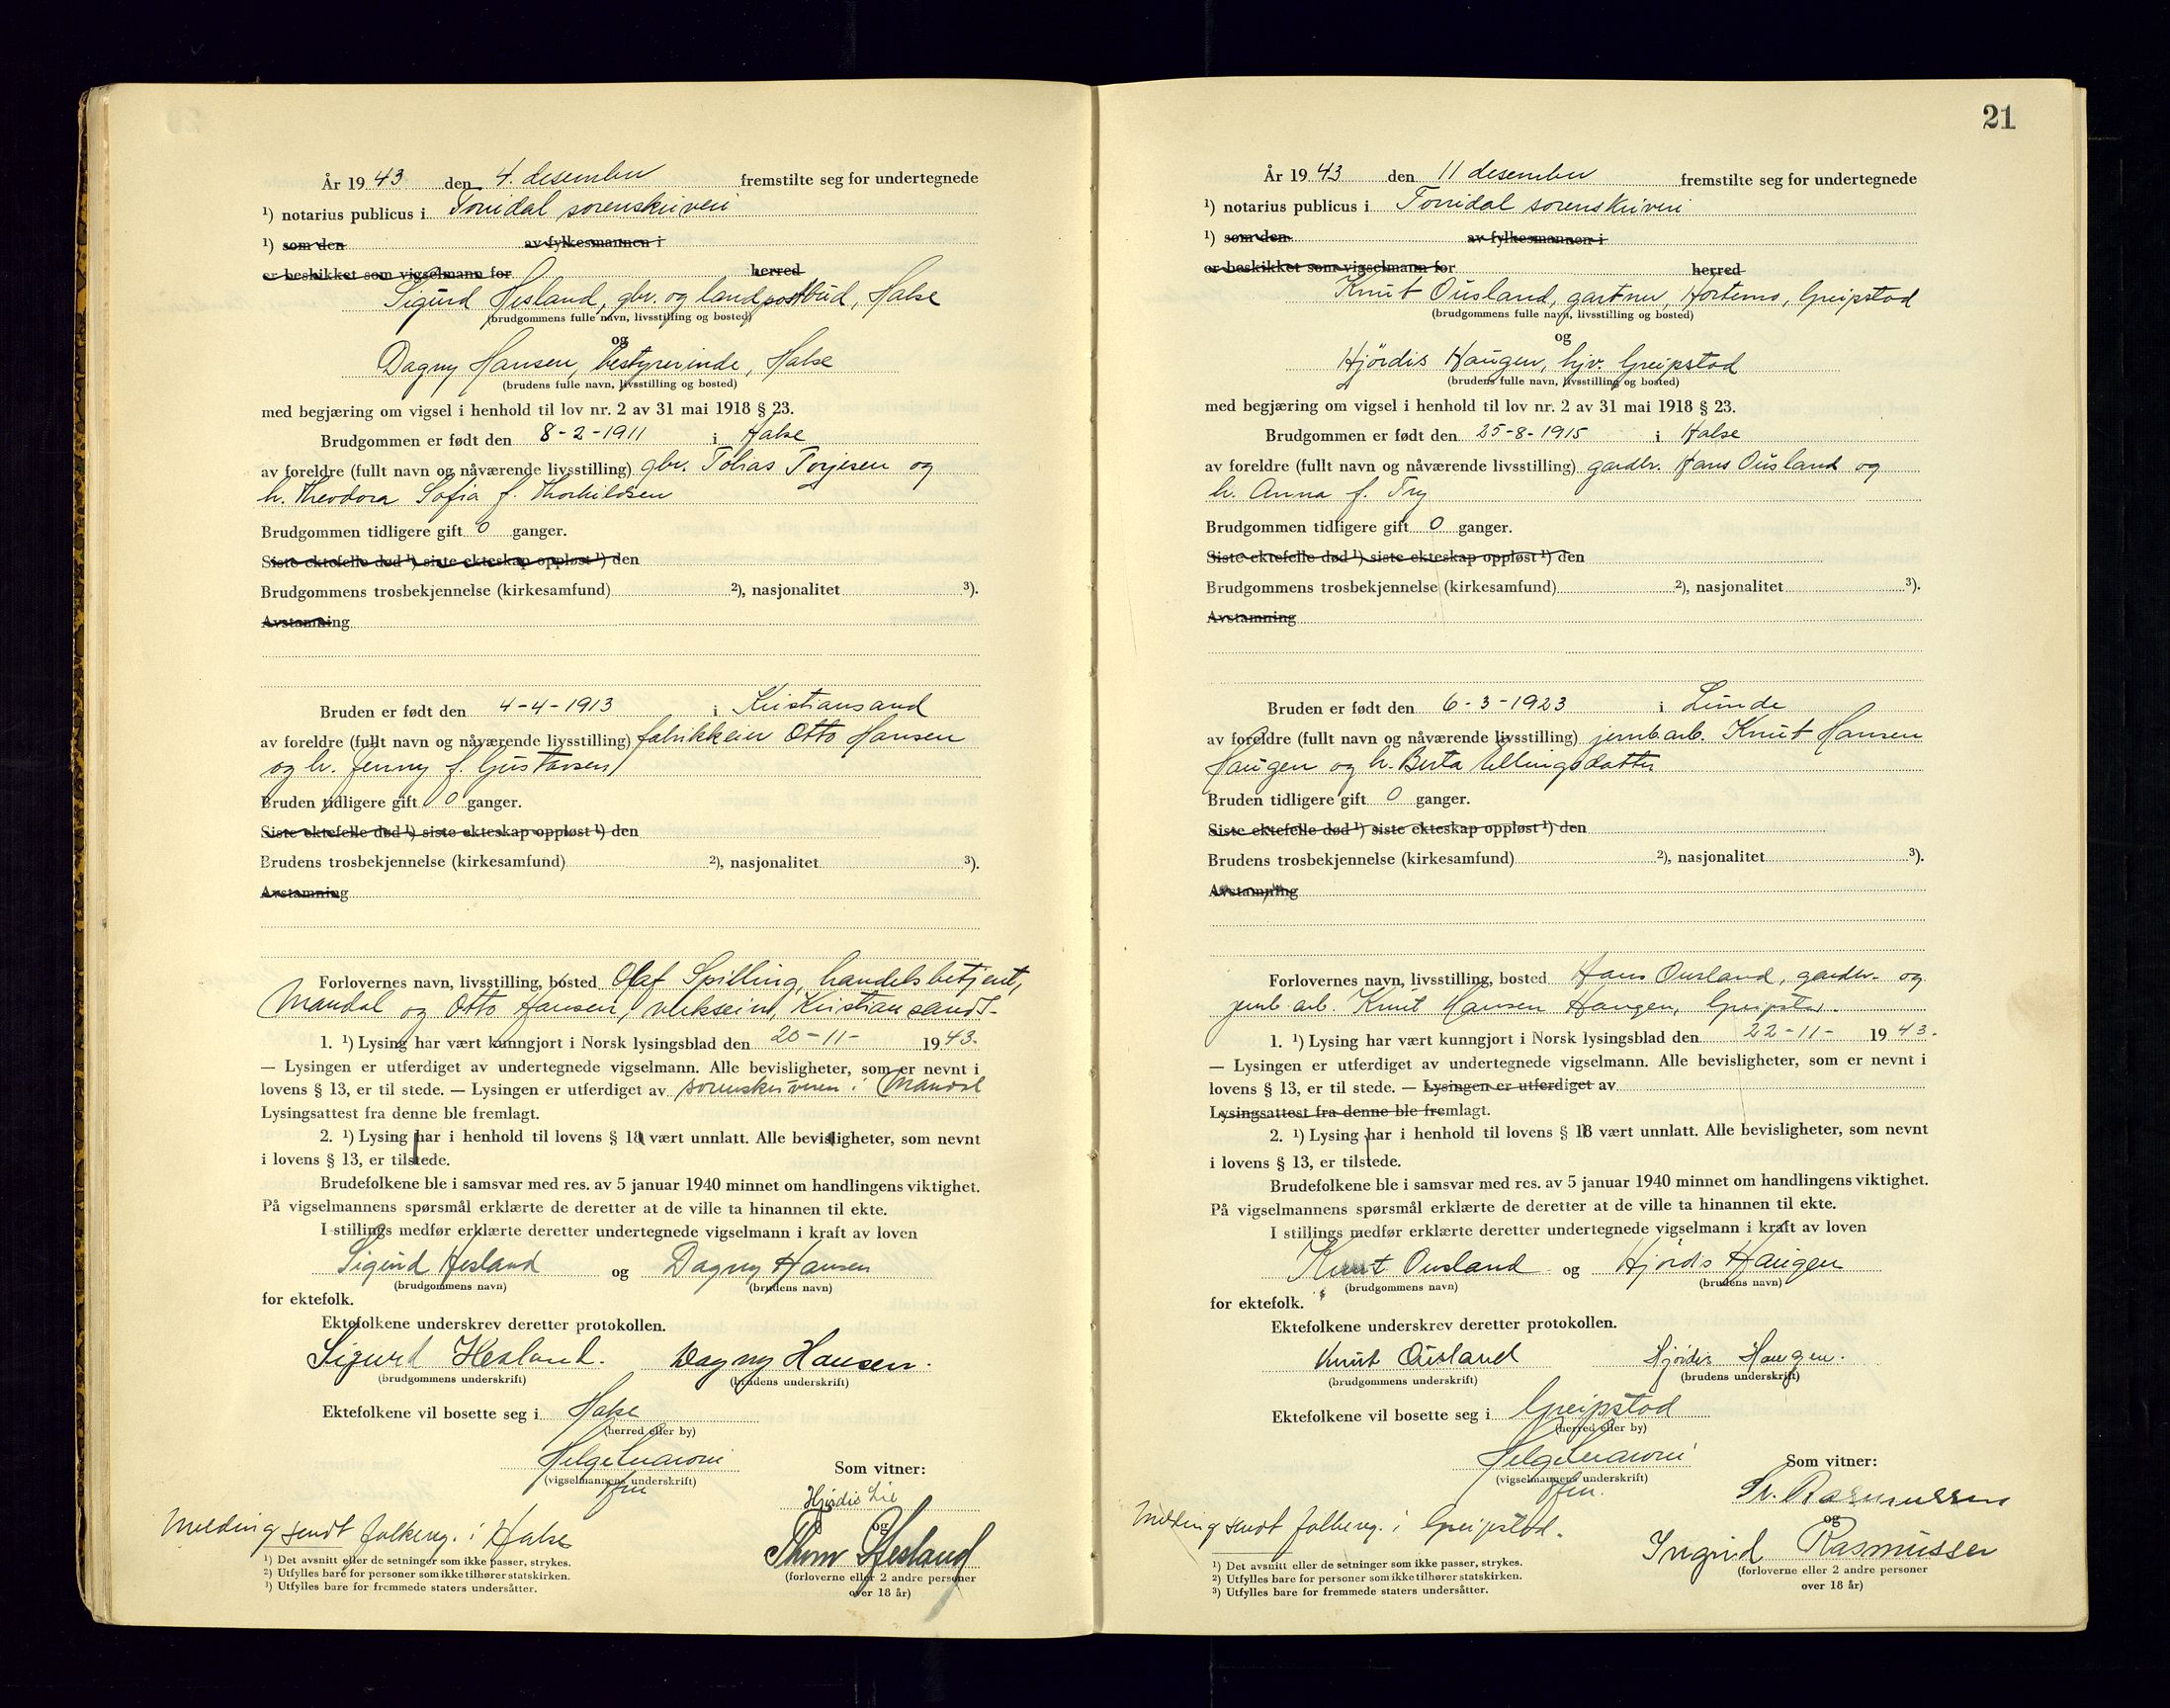 År 1943 den 4. desember fremstilte seg for undertegnede
¹) notarius publicus i Torridal sorenskriveri
¹) som den av fylkesmannen i
er beskikket som vigselmann for herred
Sigurd Hesland, gbr. og landpostbud, Halse
(brudgommens fulle navn, livsstilling og bosted)
og
Dagny Hansen, bestyrerinde, Halse
(brudens fulle navn, livsstilling og bosted)
med begjæring om vigsel i henhold til lov nr. 2 av 31 mai 1918 § 23.
Brudgommen er født den 8-2-1911 i Halse
av foreldre (fullt navn og nåværende livsstilling) gbr. Tobias Torjesen og
h. Theodora Sofia f. Thorkildsen
Brudgommen tidligere gift 0 ganger.
Siste ektefelle død ¹) siste ekteskap oppløst ¹) den
Brudgommens trosbekjennelse (kirkesamfund) ²), nasjonalitet ³).
Avstamning
Bruden er født den 4-4-1913 i Kristiansand
av foreldre (fullt navn og nåværende livsstilling) fabrikkeier Otto Hansen
og h. Jenny f. Gustavsen
Bruden tidligere gift 0 ganger.
Siste ektefelle død ¹) siste ekteskap oppløst ¹) den
Brudens trosbekjennelse (kirkesamfund) ²), nasjonalitet ³).
Avstamning
Forlovernes navn, livsstilling, bosted Olaf Spilling, handelsbetjent,
Mandal og Otto Hansen, verkseier, Kristiansand S.
1. ¹) Lysing har vært kunngjort i Norsk lysingsblad den 20-11- 1943.
— Lysingen er utferdiget av undertegnede vigselmann. Alle bevisligheter, som er nevnt i
lovens § 13, er til stede. — Lysingen er utferdiget av sorenskriveren i Mandal
Lysingsattest fra denne ble fremlagt.
2. ¹) Lysing har i henhold til lovens § 18 vært unnlatt. Alle bevisligheter, som nevnt
i lovens § 13, er tilstede.
Brudefolkene ble i samsvar med res. av 5 januar 1940 minnet om handlingens viktighet.
På vigselmannens spørsmål erklærte de deretter at de ville ta hinannen til ekte.
I stillings medfør erklærte deretter undertegnede vigselmann i kraft av loven
Sigurd Hesland og Dagny Hansen
(brudgommens navn) (brudens navn)
for ektefolk.
Ektefolkene underskrev deretter protokollen.
Sigurd Hesland. Dagny Hansen.
(brudgommens underskrift) (brudens underskrift)
Ektefolkene vil bosette seg i Halse
(herred eller by)
(vigselmannens underskrift)
Som vitner:
Hjördis Lie
og
Thom Hesland
(forloverne eller 2 andre personer
over 18 år)
Melding sendt folkereg. i Halse
¹) Det avsnitt eller de setninger som ikke passer, strykes.
²) Utfylles bare for personer som ikke tilhører statskirken.
³) Utfylles bare for fremmede staters undersåtter.
21
År 1943 den 11 desember fremstilte seg for undertegnede
¹) notarius publicus i Torridal sorenskriveri
¹) som den av fylkesmannen i
er beskikket som vigselmann for herred
Knut Ousland, gartner, Hortemo, Greipstad
(brudgommens fulle navn, livsstilling og bosted)
og
Hjördis Haugen, hjv. Greipstad
(brudens fulle navn, livsstilling og bosted)
med begjæring om vigsel i henhold til lov nr. 2 av 31 mai 1918 § 23.
Brudgommen er født den 25-8-1915 i Halse
av foreldre (fullt navn og nåværende livsstilling) gardbr. Hans Ousland og
h. Anna f. Try
Brudgommen tidligere gift 0 ganger.
Siste ektefelle død ¹) siste ekteskap oppløst ¹) den
Brudgommens trosbekjennelse (kirkesamfund) ²), nasjonalitet ³).
Avstamning
Bruden er født den 6-3-1923 i Lunde
av foreldre (fullt navn og nåværende livsstilling) jernb.arb. Knut Hansen
Haugen og h. Berta Ellingsdatter
Bruden tidligere gift 0 ganger.
Siste ektefelle død ¹) siste ekteskap oppløst ¹) den
Brudens trosbekjennelse (kirkesamfund) ²), nasjonalitet ³).
Avstamning
Forlovernes navn, livsstilling, bosted Hans Ousland, gardbr. og
jernb.arb. Knut Hansen Haugen, Greipstad.
1. ¹) Lysing har vært kunngjort i Norsk lysingsblad den 22-11- 1943.
— Lysingen er utferdiget av undertegnede vigselmann. Alle bevisligheter, som er nevnt i
lovens § 13, er til stede. — Lysingen er utferdiget av
Lysingsattest fra denne ble fremlagt.
2. ¹) Lysing har i henhold til lovens § 18 vært unnlatt. Alle bevisligheter, som nevnt
i lovens § 13, er tilstede.
Brudefolkene ble i samsvar med res. av 5 januar 1940 minnet om handlingens viktighet.
På vigselmannens spørsmål erklærte de deretter at de ville ta hinannen til ekte.
I stillings medfør erklærte deretter undertegnede vigselmann i kraft av loven
Knut Ousland og Hjördis Haugen
(brudgommens navn) (brudens navn)
for ektefolk.
Ektefolkene underskrev deretter protokollen.
Knut Ousland Hjördis Haugen.
(brudgommens underskrift) (brudens underskrift)
Ektefolkene vil bosette seg i Greipstad
(herred eller by)
(vigselmannens underskrift)
Som vitner:
Sv. Rasmussen
og
Ingrid Rasmussen
(forloverne eller 2 andre personer
over 18 år)
Melding sendt folkereg. i Greipstad.
¹) Det avsnitt eller de setninger som ikke passer, strykes.
²) Utfylles bare for personer som ikke tilhører statskirken.
³) Utfylles bare for fremmede staters undersåtter.